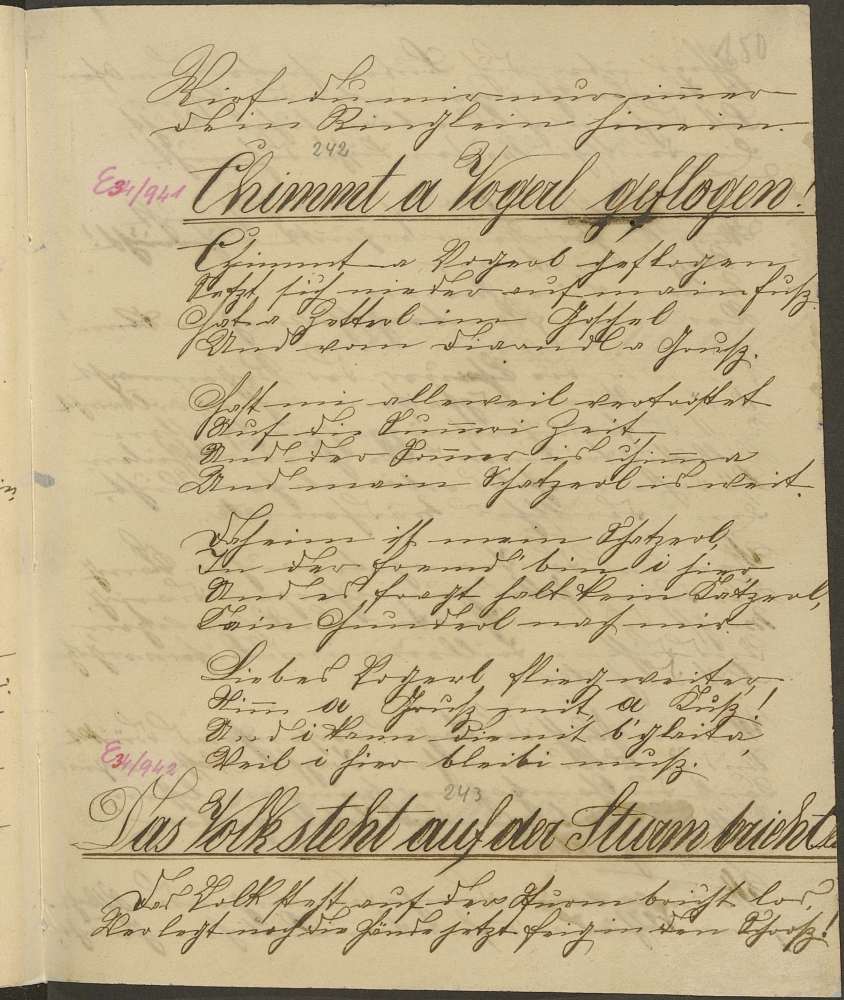 150
Wirf du mir nur immer
dein Ringlein hinein.
242
E34/941
Chimmt a Vogerl geflogen!
Chimmt a Vogerl geflogen
Setzt sich nieder auf mein Fuß
Hat a Zetterl im Goschel
Und vom Diaandl a Gruß.
Hast mi alleweil vertröstet
Auf die Summeri Zeit,
Und der Sommer is chimma
Und mein Schatzerl is weit.
Daheim ist mein Schatzerl,
In der Fremd bin i hier,
Und es fragt halt kein Kätzerl,
Kein Hunderl nach mir.
Liebes Vogerl flieg weiter,
Nimm a Gruß mit, a Kuß!
Und i kann die nit b'gleita,
Weil i hier bleibi muß.
E34/942
243
Das Volk steht auf der Sturm bricht
Das Volk steht auf der Sturm bricht los,
Wer legt noch die Hände jetzt feig in den Schooß!